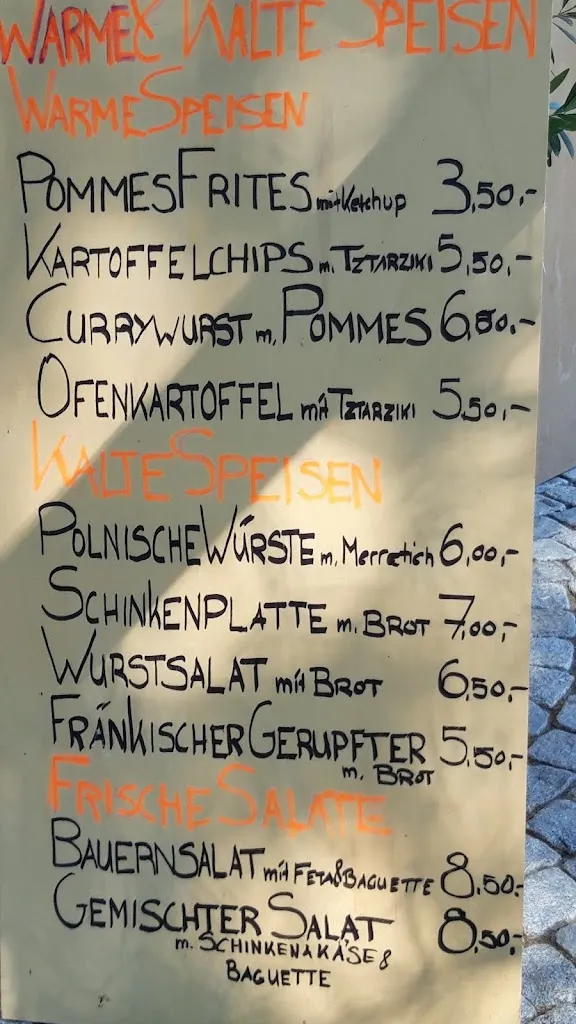 WARME & KALTE SPEISEN
WARME SPEISEN
POMMES FRITES mit Ketchup 3,50,-
KARTOFFELCHIPS m. TZTARZIKI 5,50,-
CURRYWURST m. POMMES 6,80,-
OFENKARTOFFEL mit TZTARZIKI 5,50,-
KALTE SPEISEN
POLNISCHE WÜRSTE m. Merretich 6,00,-
SCHINKENPLATTE m. BROT 7,00,-
WURSTSALAT mit BROT 6,50,-
FRÄNKISCHER GERUPFTER 5,50,-
m. BROT
FRISCHE SALATE
BAUERNSALAT mit FETA & BAGUETTE 8,50,-
GEMISCHTER SALAT 8,50,-
m. SCHINKEN & KÄSE &
BAGUETTE